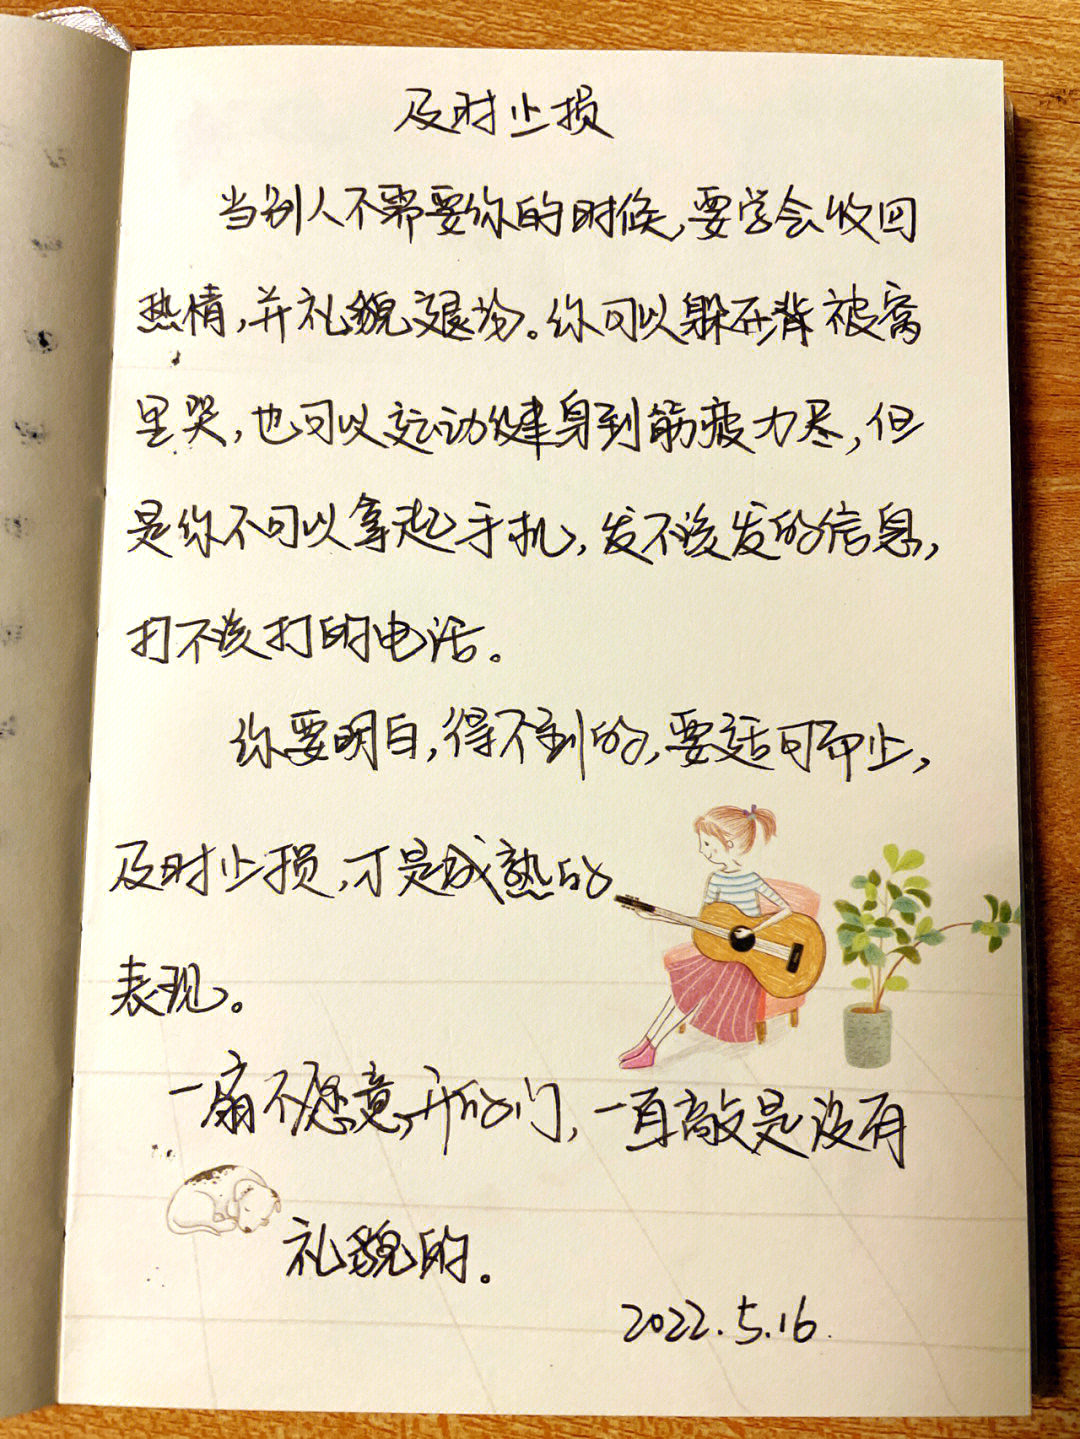 及时止损
当别人不需要你的时候,要学会收回
热情,并礼貌退场。你可以躲在背被窝
里哭,也可以运动健身到筋疲力尽,但
是你不可以拿起手机,发不该发的信息,
打不该打的电话。
你要明白,得不到的,要适可而止,
及时止损,才是成熟的
表现。
一扇不愿意开的门,一直敲是没有
礼貌的。
2022.5.16